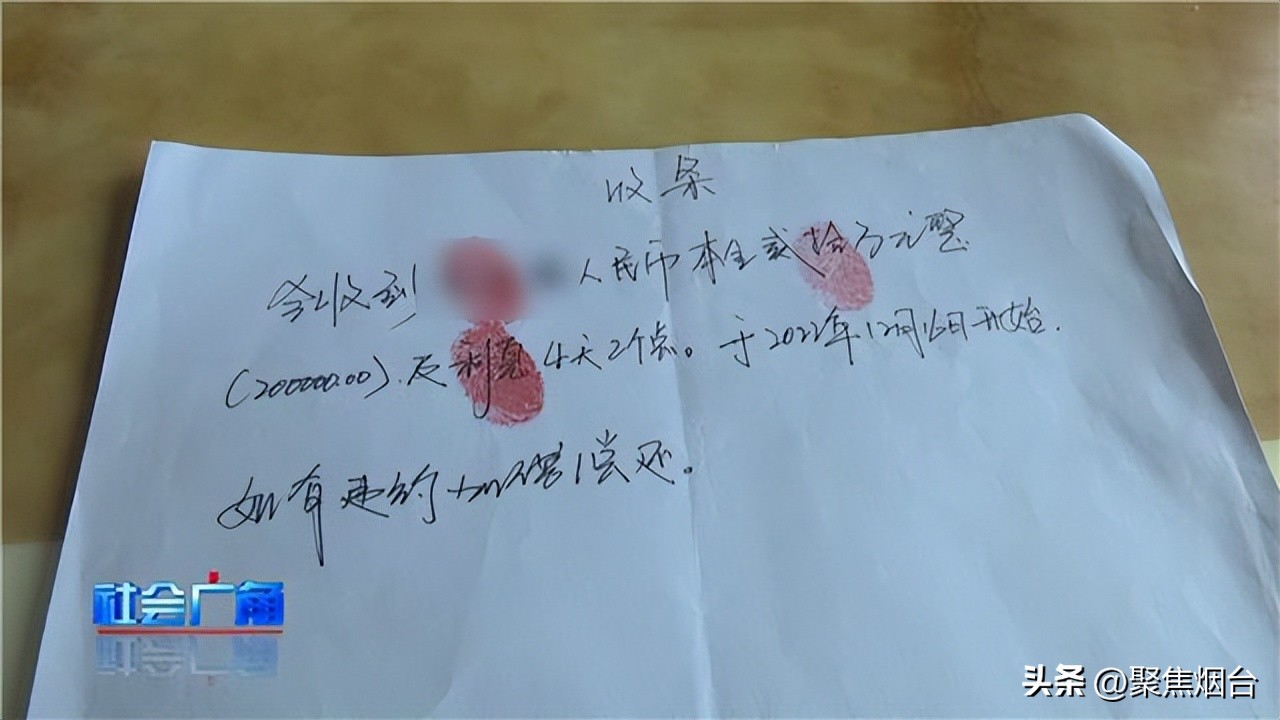 收条
今收到 人民币本金贰拾万元整
(200000.00).反利息4天2个点。于2022年12月16日开始.
如有违约加倍偿还。
社会广角
头条 @聚焦烟台